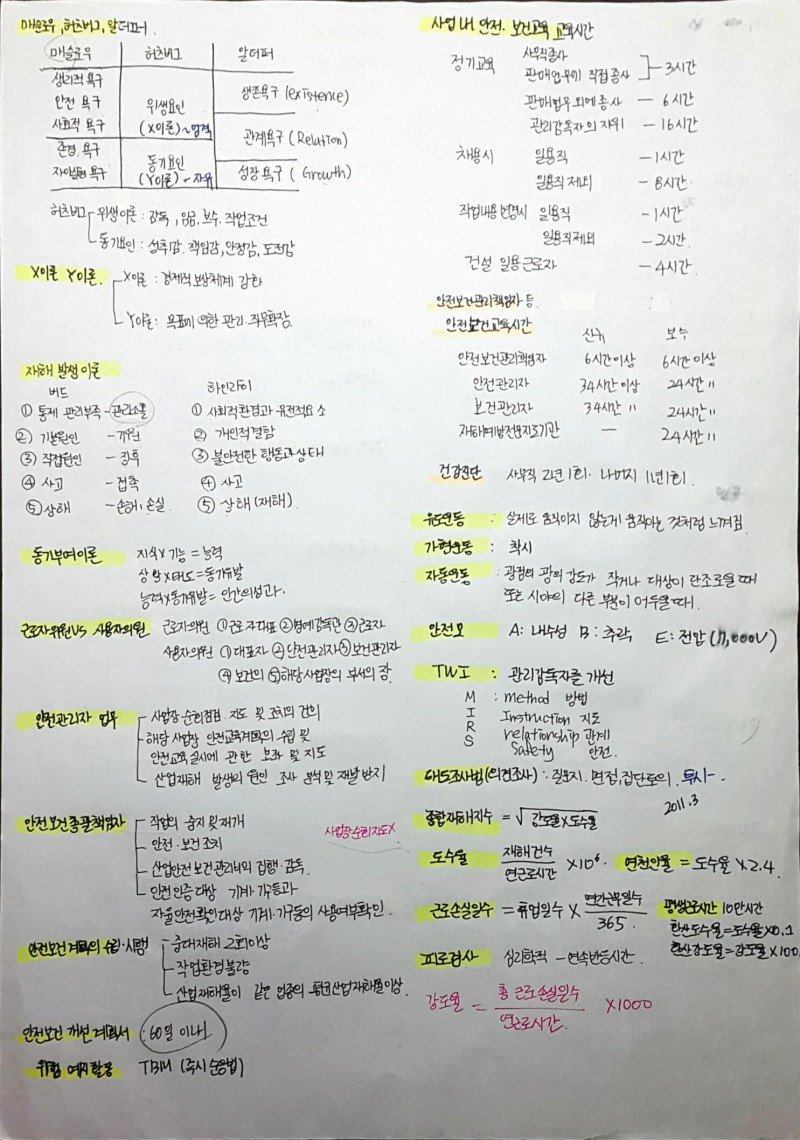 매슬로우, 허츠버그, 알더퍼
매슬로우 허츠버그 알더퍼
생리적 욕구
안전 욕구
사회적 욕구
존경 욕구
자아실현 욕구
위생요인
(X이론)~엄격
동기요인
(Y이론)~자유
생존욕구 (existence)
관계욕구 (Relation)
성장욕구 (Growth)
허츠버그 위생이론 : 감독, 임금, 보수, 작업조건
동기요인 : 성취감, 책임감, 안정감, 도전감
X이론 Y이론. X이론 : 경제적 보상체계 강화
Y이론 : 목표에 의한 관리. 직무확장.
재해 발생 이론
버드 하인리히
① 통제 관리부족 - 관리소홀 ① 사회적환경과 유전적요소
② 기본원인 - 기원 ② 개인적결함
③ 직접원인 - 징후 ③ 불안전한 행동과 상태
④ 사고 - 접촉 ④ 사고
⑤ 상해 - 손해, 손실 ⑤ 상해 (재해)
동기부여이론 지식 x 기능 = 능력
상황 x 태도 = 동기유발
능력 x 동기유발 = 인간의성과.
근로자위원 VS 사용자위원 근로자의원 ① 근로자대표 ② 명예감독관 ③ 근로자
사용자의원 ① 대표자 ② 안전관리자 ③ 보건관리자
④ 보건의 ⑤ 해당 사업장의 부서의 장
안전관리자 업무 사업장 순회점검. 지도 및 조치의 건의
해당 사업장 안전교육계획의 수립 및
안전교육 실시에 관한 보좌 및 지도
산업재해 발생의 원인 조사 분석 및 재발 방지
안전보건총괄책임자 작업의 중지 및 재개
사업장순회지도X
안전·보건조치
산업안전보건관리비의 집행·감독.
안전인증대상 기계·기구등과
자율안전확인대상 기계·기구등의 사용여부확인.
안전보건계획의 수립·시행 중대재해 2회이상
작업환경불량
산업재해율이 같은 업종의 평균산업재해율이상.
안전보건 개선계획서 : 60일 이내
위험 예지활동 TBM (즉시 순응법)
사업내 안전·보건교육 교육시간
정기교육 사무직종사
판매업무에 직접종사 3시간
판매업무외에 종사 - 6시간
관리감독자의 지위 - 16시간
채용시 일용직 - 1시간
일용직제외 - 8시간
작업내용 변경시 일용직 - 1시간
일용직제외 - 2시간.
건설 일용근로자 - 4시간.
안전보건관리책임자 등
안전보건교육시간
신규 보수
안전보건관리책임자 6시간이상 6시간이상
안전관리자 34시간이상 24시간 〃
보건관리자 34시간 〃 24시간 〃
재해예방전문지도기관 — 24시간 〃
건강진단 사무직 2년 1회. 나머지 1년 1회.
유도운동 : 실제로 움직이지 않는게 움직이는 것처럼 느껴짐
가현운동 : 착시
자동운동 : 광점의 광의 강도가 작거나 대상이 단조로울 때
또는 시야의 다른 부분이 어두울때.
안전모 A : 내수성 B : 추락 E : 전압 (7,000V)
TWI : 관리감독자를 개선
M : method 방법
I Instruction 지도
R relationship 관계
S Safety 안전.
태도조사법(의견조사) : 질문지. 면접. 집단토의. 투사~
2011.3
종합재해지수 = √강도율×도수율
도수율 재해건수 / 연근로시간 ×10⁶. 연천인율 = 도수율 × 2.4
근로손실일수 = 휴업일수 × 연간근무일수 / 365.
평생근로시간 10만시간
환산도수율=도수율×0.1
환산강도율=강도율×100
피로검사 심리학적 - 연속반응시간.
강도율 = 총 근로손실일수 / 연근로시간. ×1000